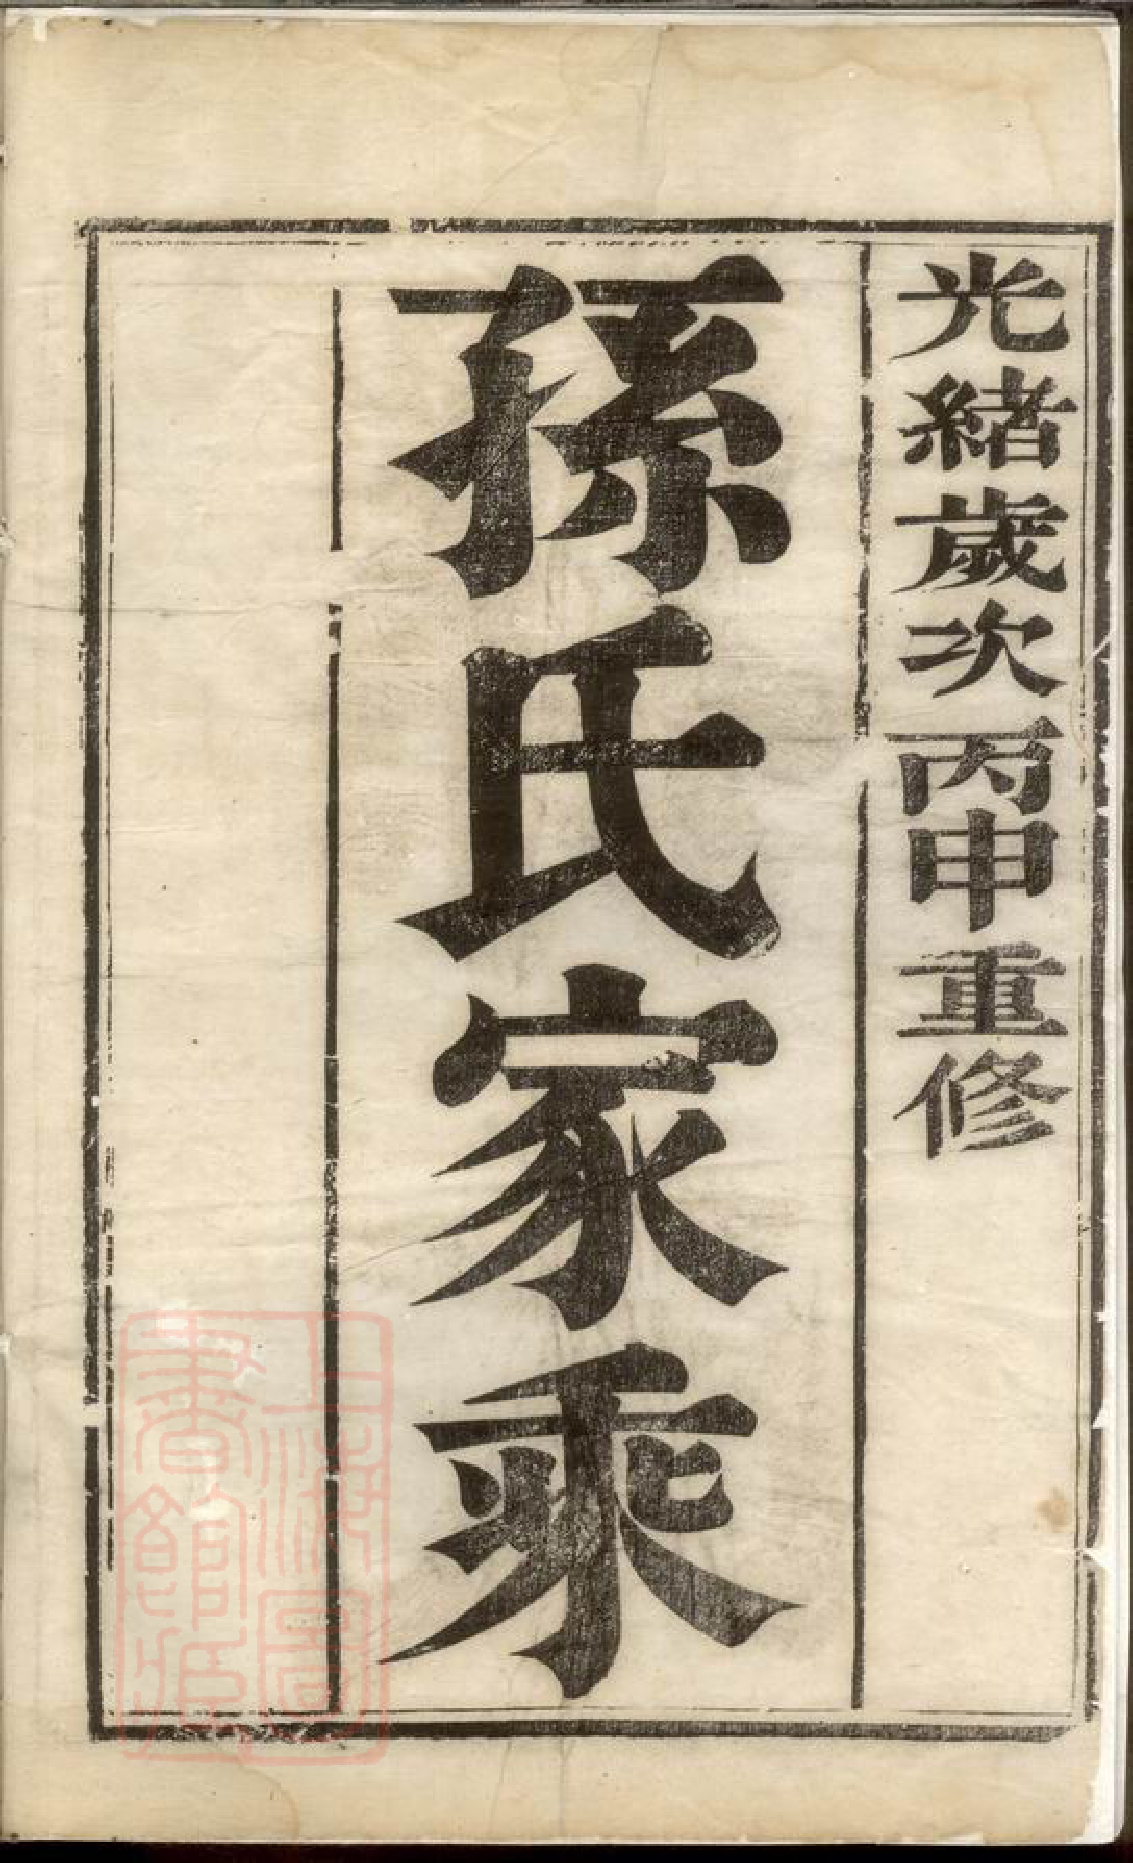 光緒歲次丙申重修
孫氏家乘
上海圖
書館藏